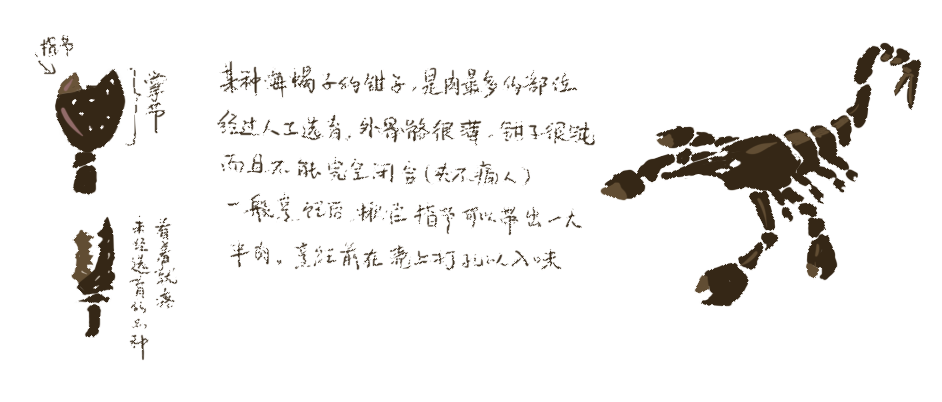 指节
掌节
某种海蝎子的钳子，是肉最多的部位
经过人工选育，外骨骼很薄，钳子很钝
而且不能完全闭合（夹不痛人）
一般烹饪后，掀掉指节可以带出一大
半肉。烹饪前在壳上打孔以入味
看着就疼
未经选育的品种